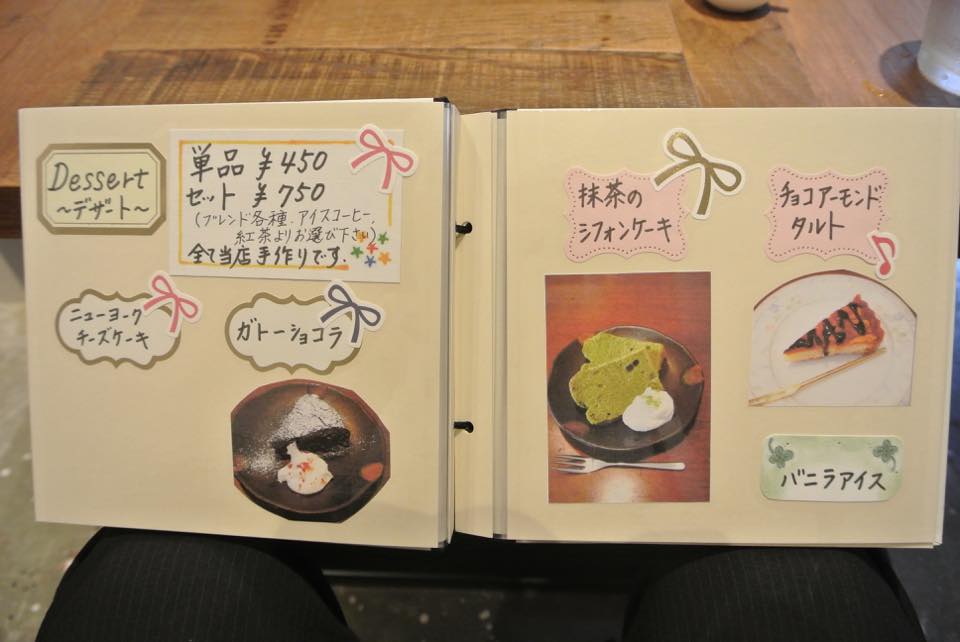 Dessert
～デザート～
単品 ¥450
セット ¥750
(ブレンド各種、アイスコーヒー、
紅茶よりお選び下さい)
全て当店手作りです.
ニューヨーク
チーズケーキ
ガトーショコラ
抹茶の
シフォンケーキ
チョコアーモンド
タルト
バニラアイス